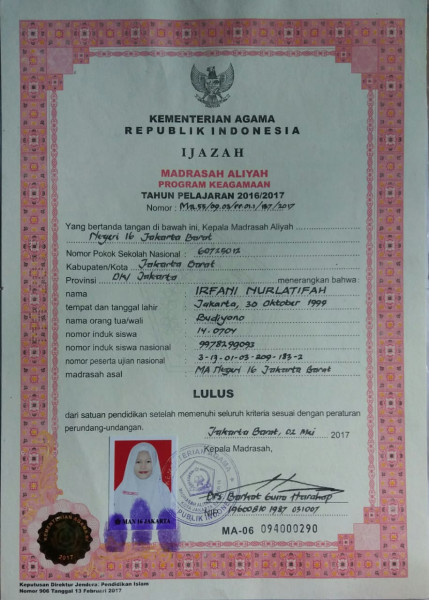 KEMENTERIAN AGAMA
REPUBLIK INDONESIA
IJAZAH
MADRASAH ALIYAH
PROGRAM KEAGAMAAN
TAHUN PELAJARAN 2016/2017
Nomor :
Yang bertanda tangan di bawah ini, Kepala Madrasah Aliyah
Negeri 16 Jakarta Barat
Nomor Pokok Sekolah Nasional :
Kabupaten/Kota Jakarta Barat
Provinsi DKI Jakarta menerangkan bahwa :
nama IRFANI NURLATIFAH
tempat dan tanggal lahir Jakarta, 30 Oktober 1999
nama orang tua/wali Budiyono
nomor induk siswa 14.0704
nomor induk siswa nasional 9978299093
nomor peserta ujian nasional 3-13-01-03-209-183-2
madrasah asal MA Negeri 16 Jakarta Barat
LULUS
dari satuan pendidikan setelah memenuhi seluruh kriteria sesuai dengan peraturan
perundang-undangan.
Jakarta Barat, 02 Mei 2017
Kepala Madrasah,
MAN 16 JAKARTA
Drs. Barkat Guru Harahap
NIP. 1987 031007
MA-06 094000290
2017
Keputusan Direktur Jenderal Pendidikan Islam
Nomor 906 Tanggal 13 Februari 2017